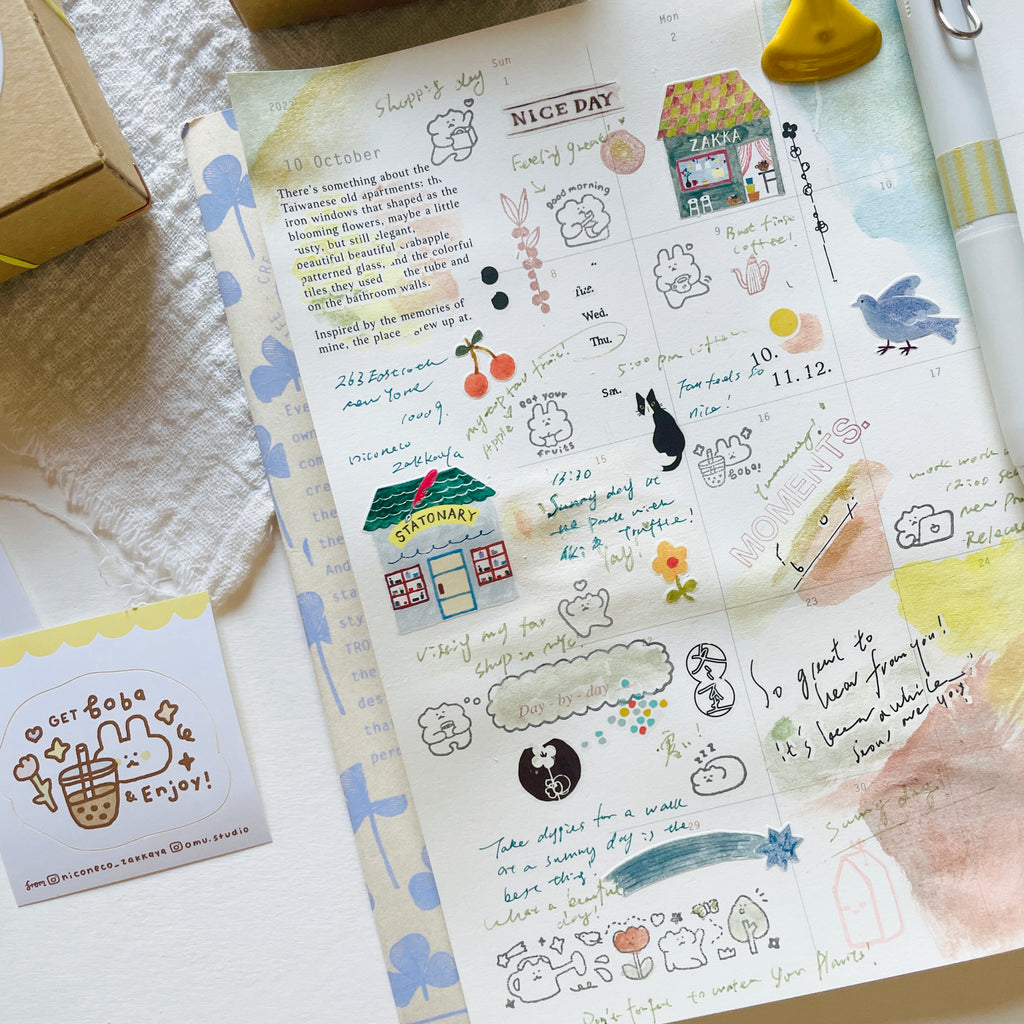 Sun
Mon
1
2
Shopping day
NICE DAY
10 October
Feeling great!
ZAKKA
There's something about the
Taiwanese old apartments: the
iron windows that shaped as the
blooming flowers, maybe a little
rusty, but still elegant,
beautiful beautiful crabapple
patterned glass, and the colorful
tiles they used the tube and
on the bathroom walls.
Inspired by the memories of
mine, the place grew up at.
good morning
8
9
10
coffee!
Tue.
Wed.
Thu.
Sm.
5:00 pm coffee
10.
11. 12.
Fall feels so
nice!
263 East
new York
10009.
niconeco
zakkaya
Apple
eat your
fruits
15
16
17
boba!
yummy!
MOMENTS.
STATONARY
13:30
Sunny day at
the park with
AKI & Truffle!
Yay!
work work
12:00
new
Release
shop in nyc
22
23
24
Day-by-day
zzz
So great to
hear from you!
it's been a while
29
30
Sunny day!
Take doggies for a walk
on a sunny day is the
best thing!
What a beautiful
day!
Don't forget to water your plants!
GET boba
& Enjoy!
from @niconeco_zakkaya @omu.studio